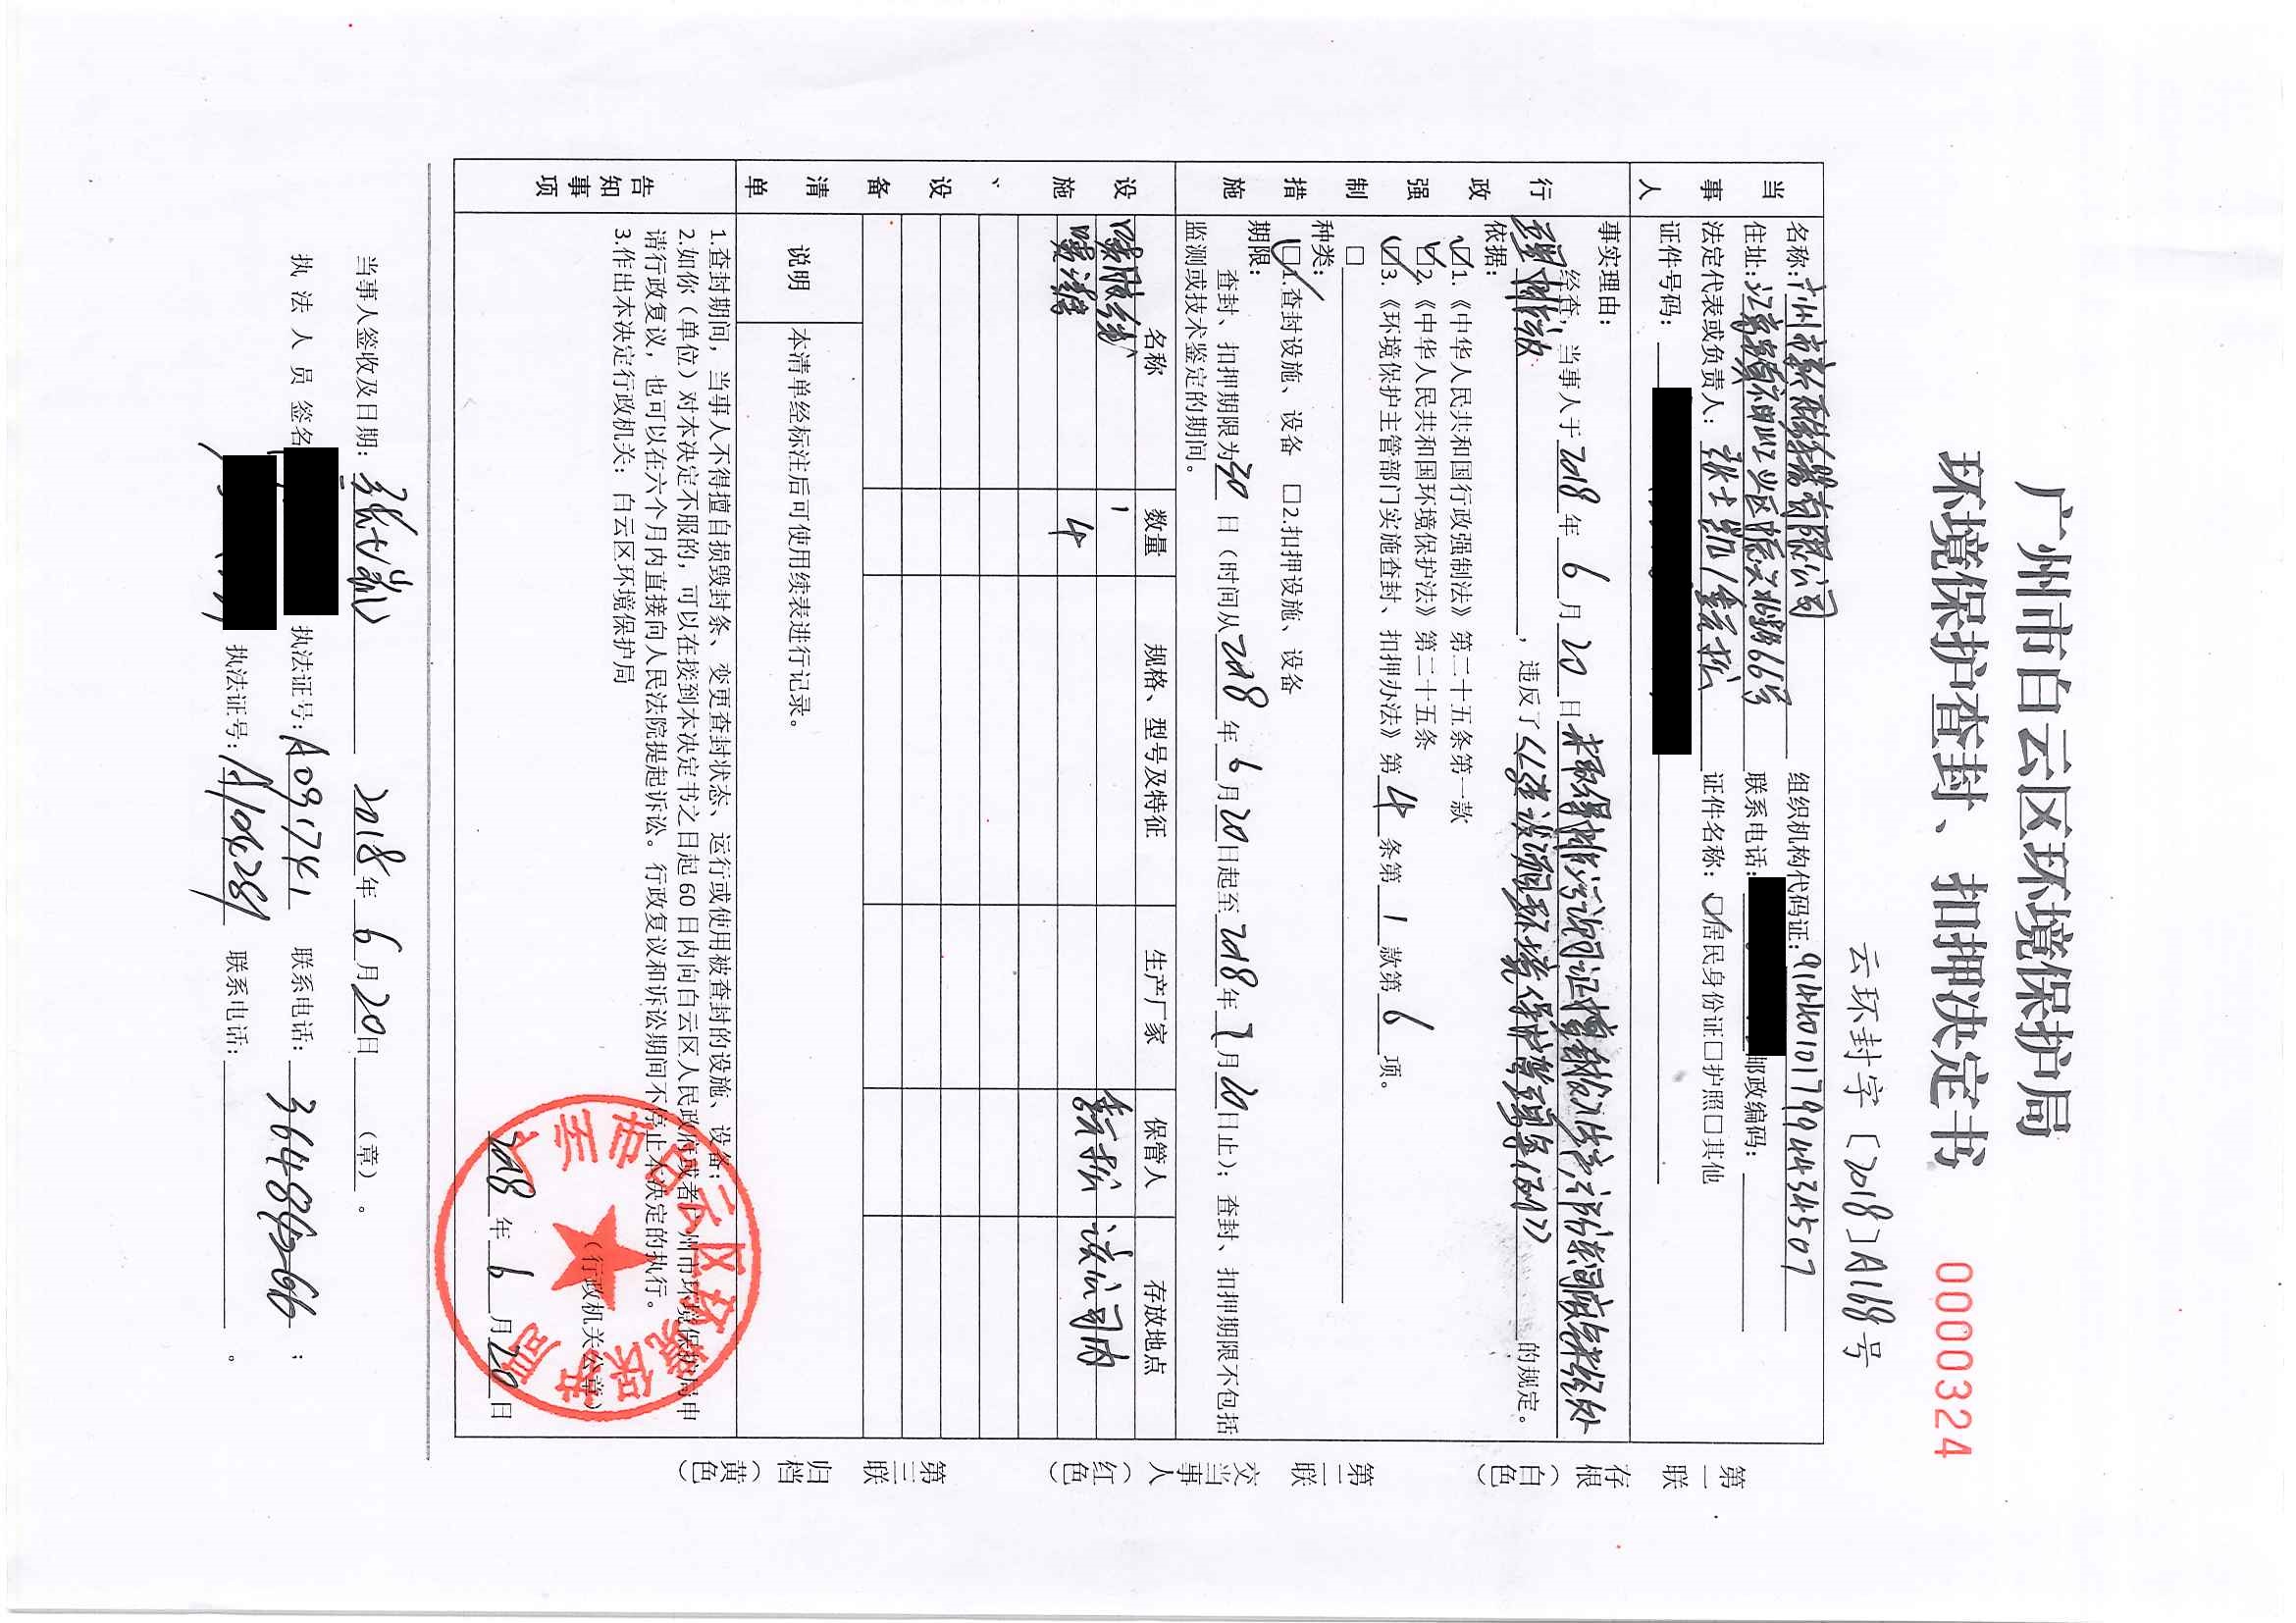 广州市白云区环境保护局
环境保护查封、扣押决定书
0000324
云环封字〔2018〕A168号
当事人
名称：广州市新 有限公司 组织机构代码证：914401017994434507
住址：江高镇 工业区振兴北路66号 联系电话： 邮政编码：
法定代表或负责人：张士凯/ 松 证件名称：☑居民身份证□护照□其他
证件号码：
行政强制措施
事实理由：
经查，当事人于2018年6月20日未取得排污许可证
排放，违反了《建设项目环境保护管理条例》的规定。
依据：
☑1.《中华人民共和国行政强制法》第二十五条第一款
☑2.《中华人民共和国环境保护法》第二十五条
☑3.《环境保护主管部门实施查封、扣押办法》第4条第1款第6项。
□
种类：
☑1.查封设施、设备 □2.扣押设施、设备
期限：
查封、扣押期限为30日（时间从2018年6月20日起至2018年7月20日止）；查封、扣押期限不包括
监测或技术鉴定的期间。
设施、设备清单
名称 数量 规格、型号及特征 生产厂家 保管人 存放地点
1
喷漆 4 松 该公司内
说明 本清单经标注后可使用续表进行记录。
告知事项
1.查封期间，当事人不得擅自损毁封条、变更查封状态、运行或使用被查封的设施、设备；
2.如你（单位）对本决定不服的，可以在接到本决定书之日起60日内向白云区人民政府或者广州市环境保护局申
请行政复议，也可以在六个月内直接向人民法院提起诉讼。行政复议和诉讼期间不停止本决定的执行。
3.作出本决定行政机关：白云区环境保护局
（行政机关公章）
2018年6月20日
广州市白云区环境保护局
当事人签收及日期：张士凯 2018年6月20日 （章）。
执法人员签名 执法证号：A091741 联系电话：36486266；
执法证号：A106281 联系电话： 。
第一联 存根（白色）
第二联 交当事人（红色）
第三联 归档（黄色）